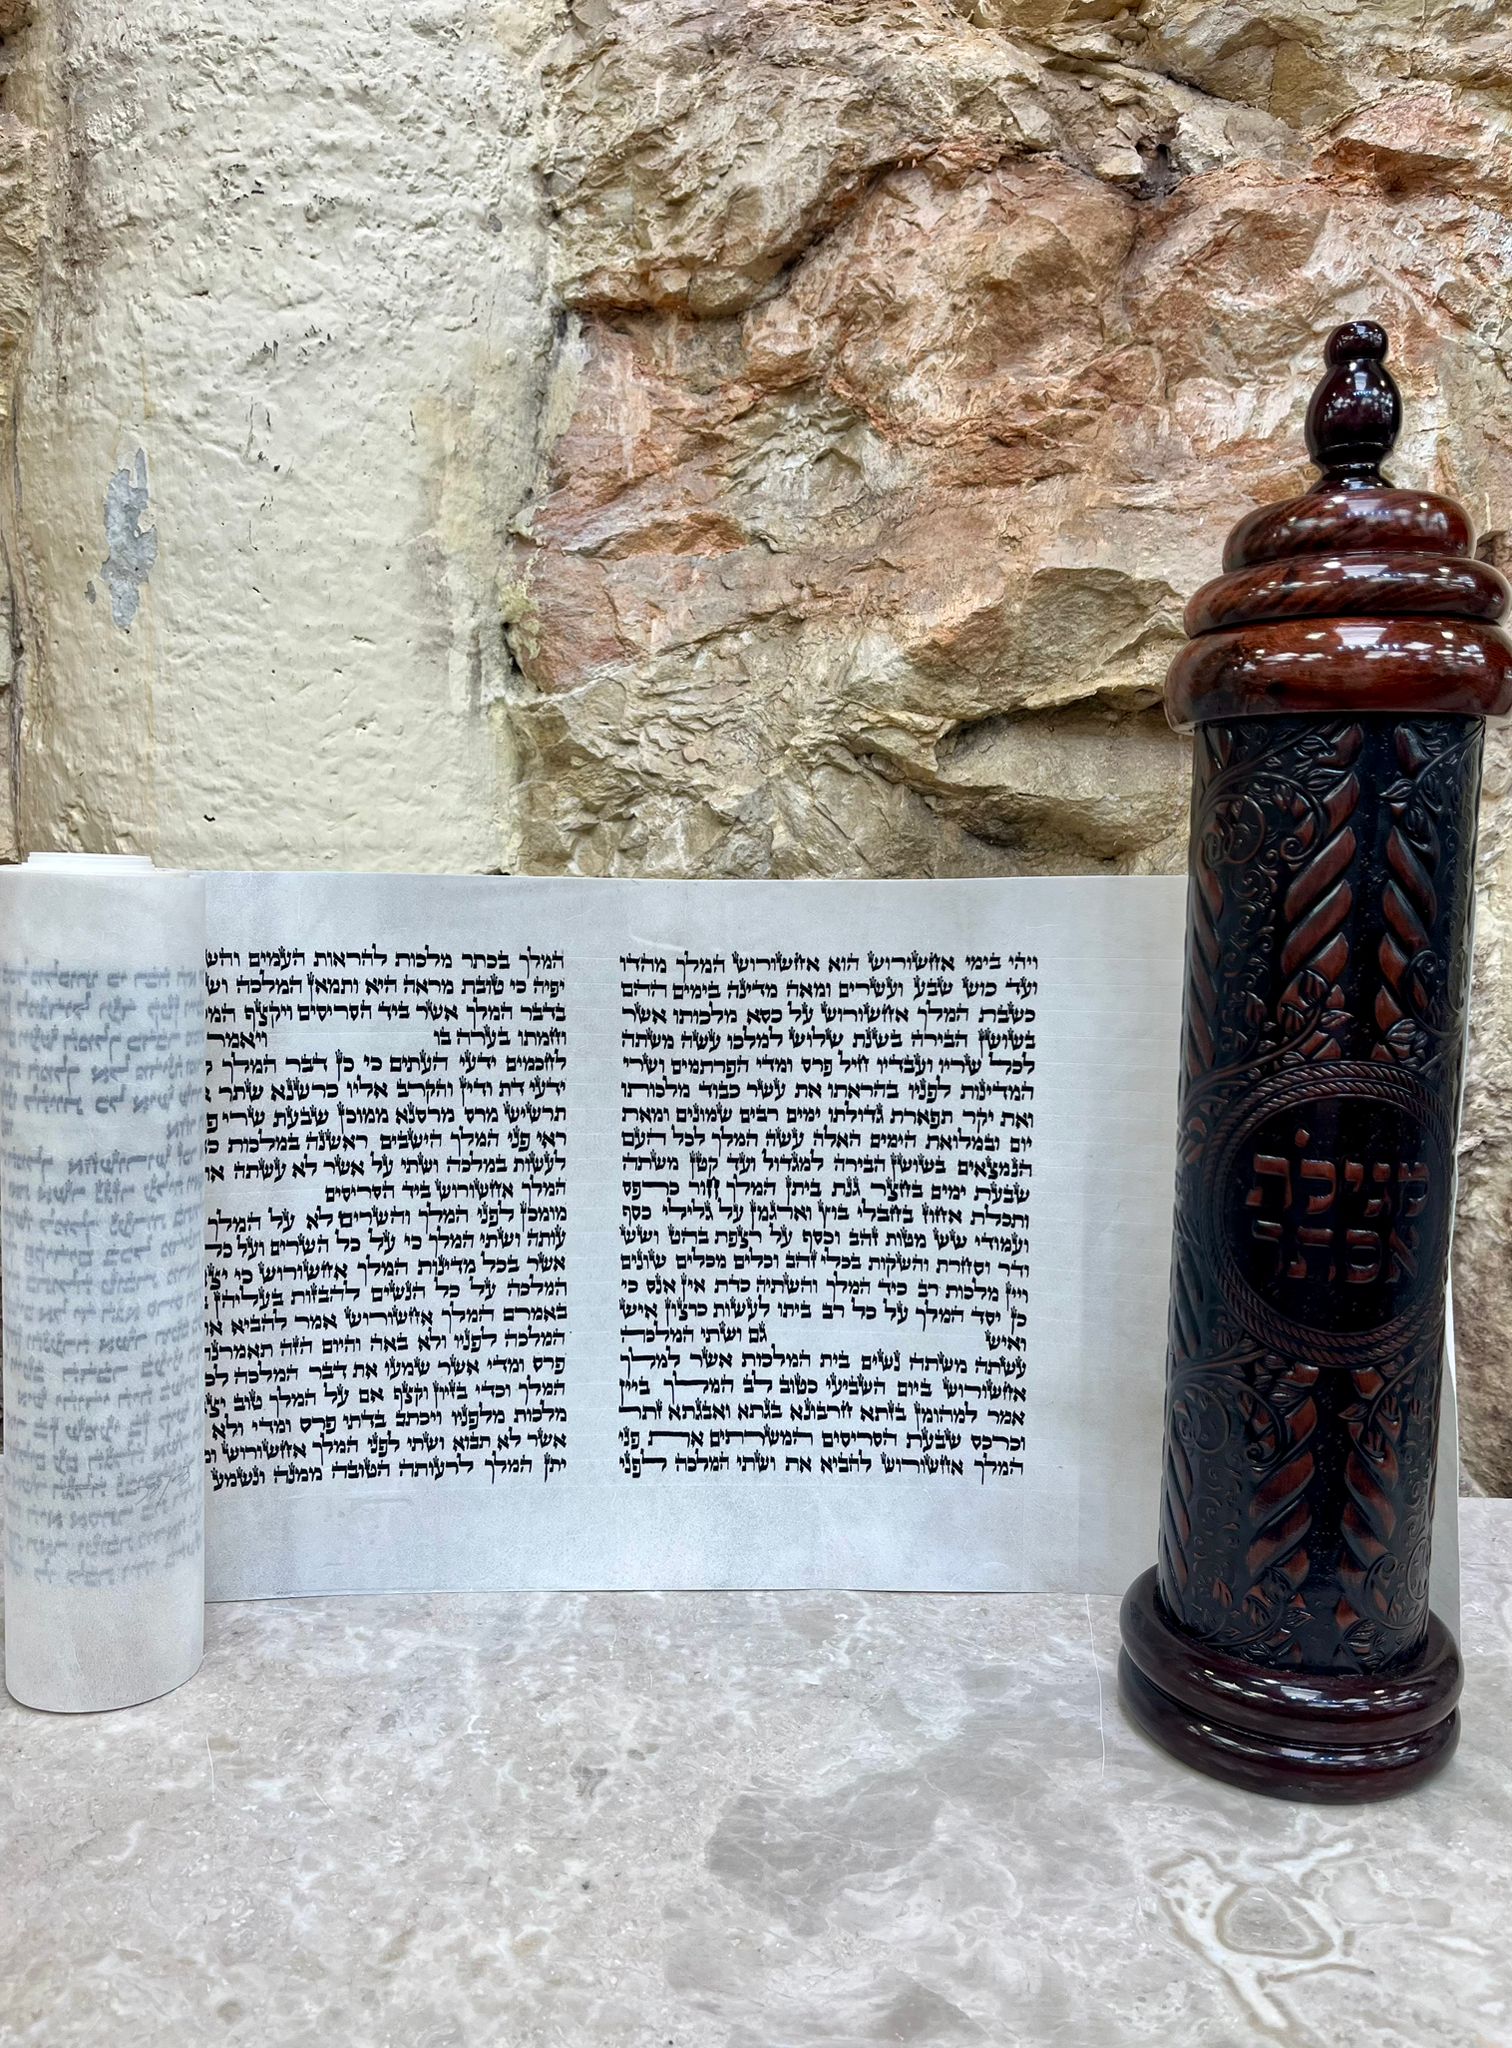 ויהי בימי אחשורוש הוא אחשורוש המלך מהדו
ועד כוש שבע ועשרים ומאה מדינה בימים ההם
כשבת המלך אחשורוש על כסא מלכותו אשר
בשושן הבירה בשנת שלוש למלכו עשה משתה
לכל שריו ועבדיו חיל פרס ומדי הפרתמים ושרי
המדינות לפניו בהראתו את עשר כבוד מלכותו
ואת יקר תפארת גדולתו ימים רבים שמונים ומאת
יום ובמלואת הימים האלה עשה המלך לכל העם
הנמצאים בשושן הבירה למגדול ועד קטן משתה
שבעת ימים בחצר גנת ביתן המלך חור כרפס
ותכלת אחוז בחבלי בוץ וארגמן על גלילי כסף
ועמודי שש מטות זהב וכסף על רצפת בהט ושש
ודר וסחרת והשקות בכלי זהב וכלים מכלים שונים
ויין מלכות רב כיד המלך והשתיה כדת אין אנס כי
כן יסד המלך על כל רב ביתו לעשות כרצון איש
ואיש גם ושתי המלכה
עשתה משתה נשים בית המלכות אשר למלך
אחשורוש ביום השביעי כטוב לב המלך ביין
אמר למהומן בזתא חרבונא בגתא ואבגתא זתר
וכרכס שבעת הסריסים המשרתים את פני
המלך אחשורוש להביא את ושתי המלכה לפני
המלך בכתר מלכות להראות העמים
יפיה כי טובת מראה היא ותמאן המלכה
בדבר המלך אשר ביד הסריסים ויקצף
וחמתו בערה בו ויאמר
לחכמים ידעי העתים כי כן דבר המלך
ידעי דת ודין והקרב אליו כרשנא שתר
תרשיש מרס מרסנא ממוכן שבעת שרי
ראי פני המלך הישבים ראשנה במלכות
לעשות במלכה ושתי על אשר לא עשתה
המלך אחשורוש ביד הסריסים
מומכן לפני המלך והשרים לא על המלך
עותה ושתי המלכה כי על כל השרים ועל כל
אשר בכל מדינות המלך אחשורוש כי
המלכה על כל הנשים להבזות בעליהן
באמרם המלך אחשורוש אמר להביא
המלכה לפניו ולא באה והיום הזה תאמרנה
פרס ומדי אשר שמעו את דבר המלכה
המלך וכדי בזיון וקצף אם על המלך טוב
מלכות מלפניו ויכתב בדתי פרס ומדי ולא
אשר לא תבוא ושתי לפני המלך אחשורוש
יתן המלך לרעותה הטובה ממנה ונשמע
מגילת
אסתר